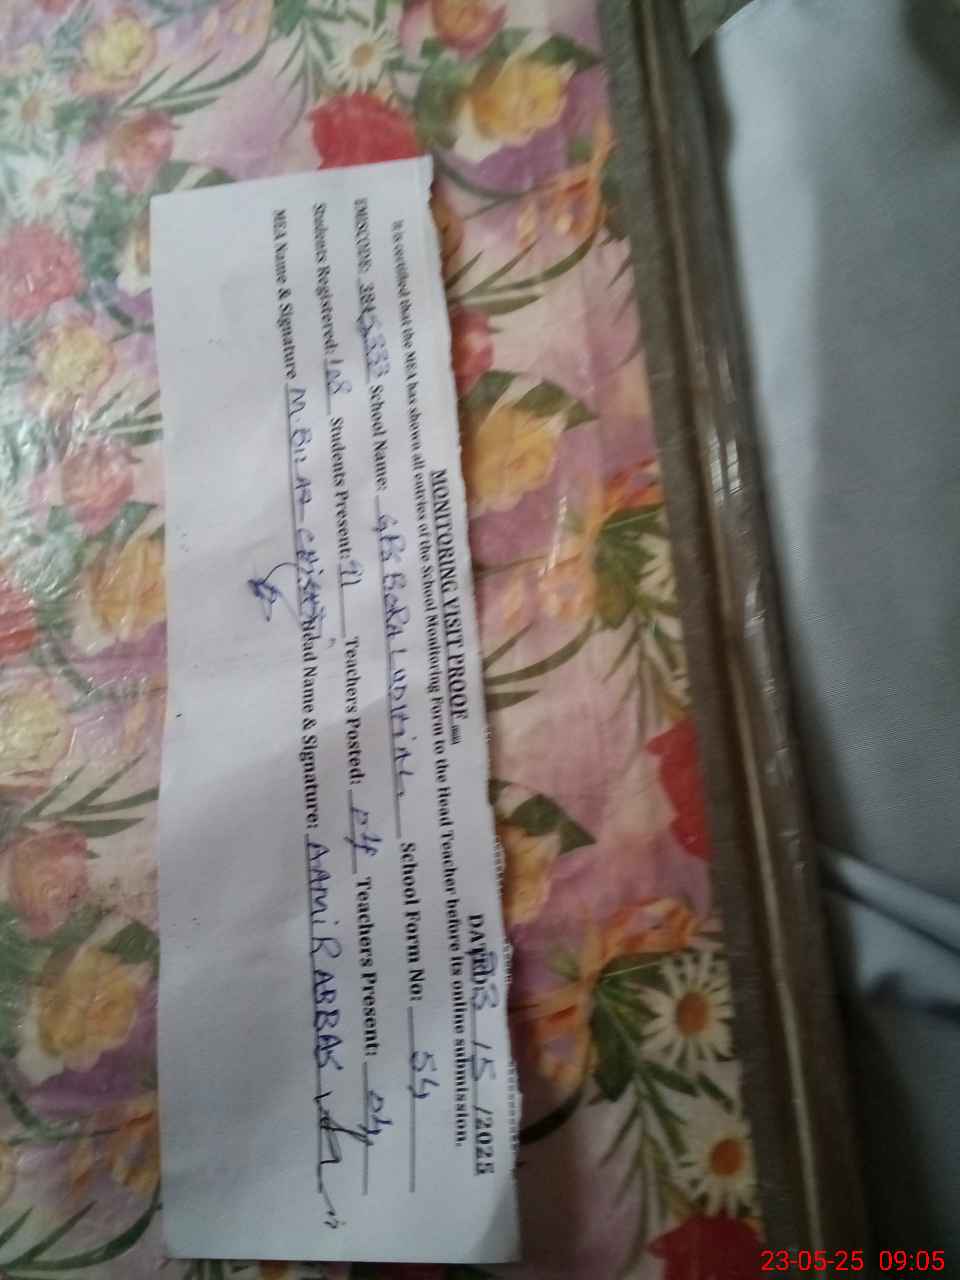 MONITORING VISIT PROOF
DATED: 23 /5 /2025
It is certified that the MEA has shown all entries of the School Monitoring Form to the Head Teacher before its online submission.
EMISCODE: School Name: GPS School Form No: 54
Students Registered: 108 Students Present: 91 Teachers Posted: 04 Teachers Present: 04
MEA Name & Signature Head Name & Signature: AAMiR ABBAS
23-05-25 09:05